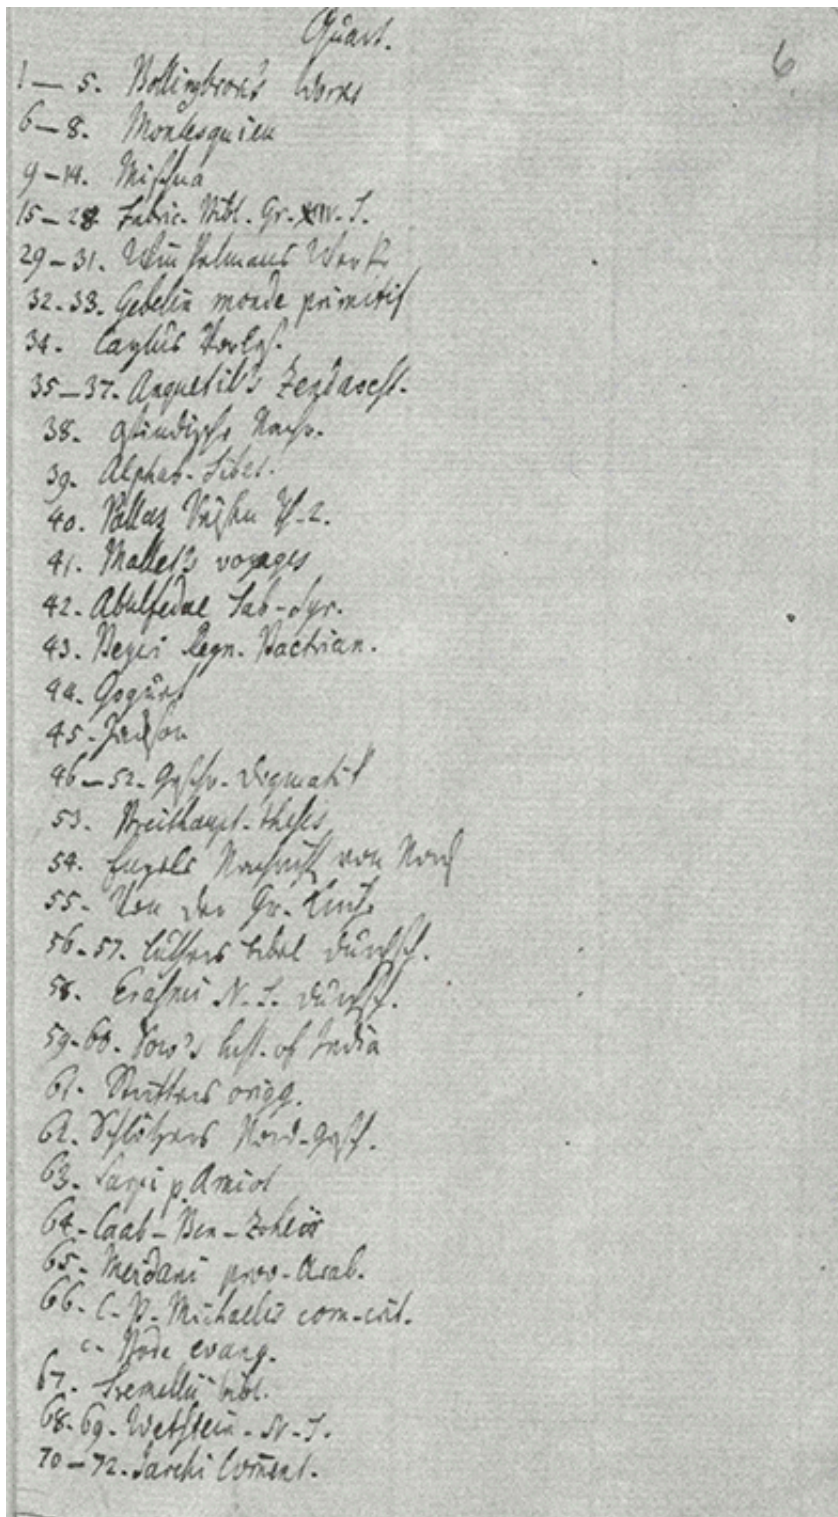 Quart.
6
1 — 5. Bollingbrok's Works
6 — 8. Montesquieu
9 — 14. Mischna
15 — 28. Fabric. Bibl. Gr. XIV. T.
29 — 31. Winkelmans Werke
32-33. Gebelin monde primitif
34. Caylus
35 — 37. Anquetil's Zendavest.
38. Ostindische Nachr.
39. Alphab. Tibet.
40. Pallas Reisen Th. 2.
41. Mallet's voyages
42. Abulfedae Tab. Syr.
43. Beyeri Regn. Bactrian.
44. Goguet
45. Jackson
46 — 52. Dogmatik
53. Breithaupt. theses
54. Engels von Nord
55. Von der Gr. Kirche
56-57. Luthers bibel durchsch.
58. Erasmi N. T. durchsch.
59-60. Dow's hist. of India
61. origg.
62. Schlözers Nord. Gesch.
63. p. Amiot
64. Caab-Ben-Zoheir
65. Meidani prov. Arab.
66. C. B. Michaelis com. crit.
c. Bode evang.
67. Tremellii bibl.
68. 69. Wetstein. N. T.
70 — 72. Jarchi Coment.